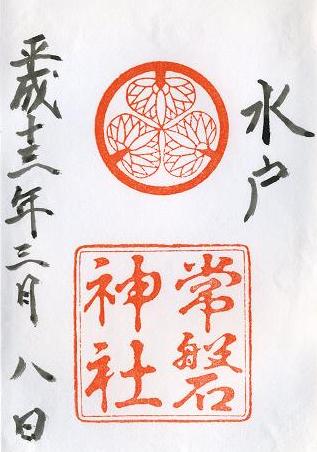 水戸
常磐
神社
平成十三年三月八日